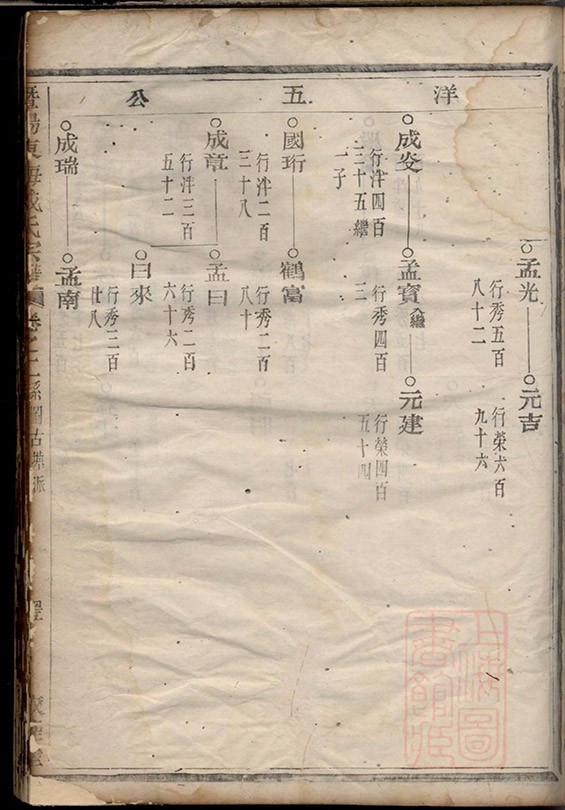 洋 五 公
孟光 元吉
行秀五百
八十二
行榮六百
九十六
成㕛 孟寶 入繼 元建
行泮四百
三十五繼
一子
行秀四百
三
行榮四百
五十四
國珩 鶴富
行泮二百
三十八
行秀二百
八十
成章 孟曰
行泮三百
五十二
行秀二百
六十六
曰來
行秀三百
廿八
成瑞 孟南
暨陽東海 氏宗譜 卷之 系圖古 派
上海圖書館